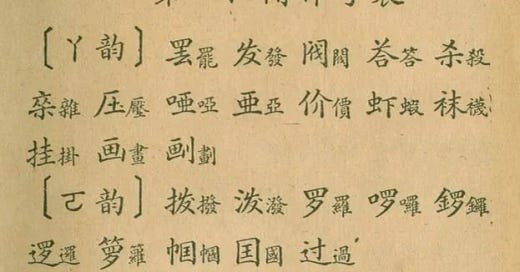 〔ㄚ韵〕罢罷 发發 阀閥 荅答 杀殺
杂雜 圧壓 唖啞 亜亞 价價 虾蝦 袜襪
挂掛 画畫 㓰劃
〔ㄛ韵〕拨撥 泼潑 罗羅 啰囉 锣鑼
逻邏 箩籮 帼幗 囯國 过過